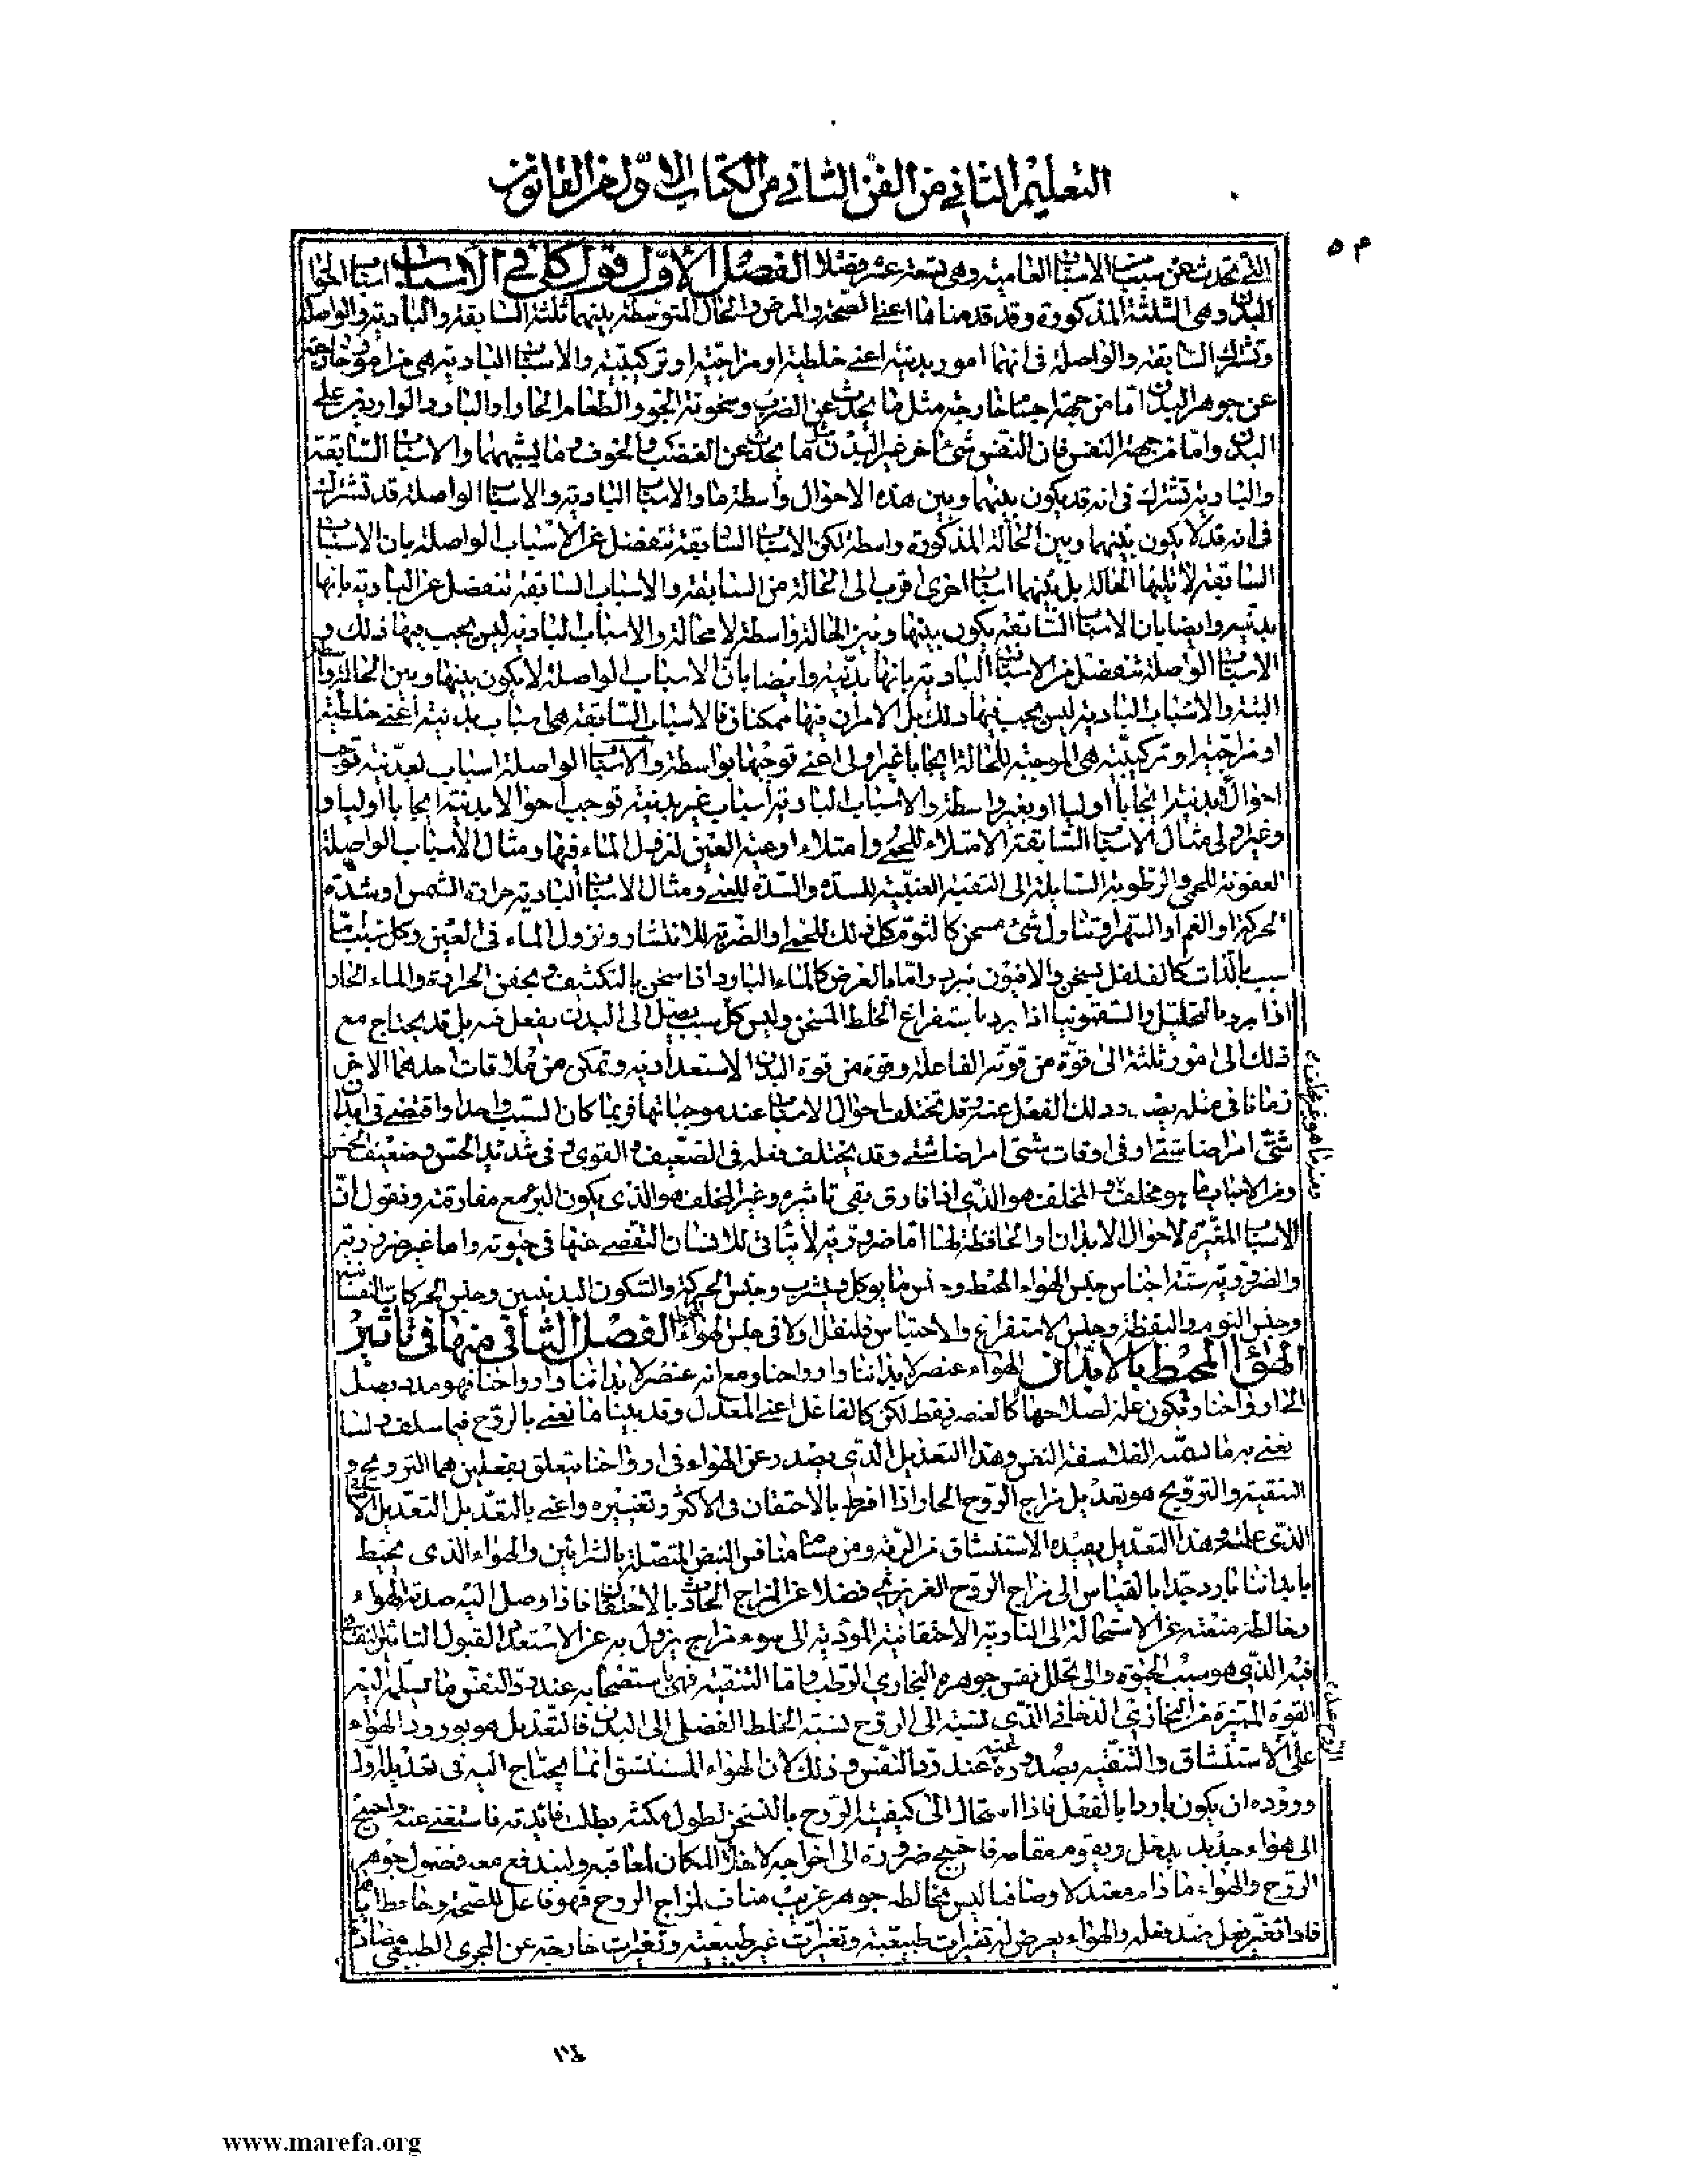 التعليم الثاني من الفن الثاني من الكتاب الاول من القانون
٥٣
التي تحدث عن سبب سبب من الاسباب العامية وهي تسعة عشر فصلا الفصل الاول قول كلي في الاسباب اسباب احوال
البدن وهي الثلثة المذكورة وقد قدمناها اعني الصحة والمرض والحال المتوسطة بينهما ثلثة السابقة والبادية والواصلة
وتشترك السابقة والواصلة في انهما امور بدنية اعني خلطية او مزاجية او تركيبية والاسباب البادية هي من امور خارجة
عن جوهر البدن اما من جهة اجسام خارجة مثل ما يحدث عن الضرب وسخونة الجو والطعام الحار او البارد الواردين على
البدن واما من جهة النفس فان النفس شئ اخر غير البدن مثل ما يحدث عن الغضب والخوف وما يشبههما والاسباب السابقة
والبادية تشترك في انه قد يكون بينهما وبين هذه الاحوال واسطة ما والاسباب البادية والاسباب الواصلة قد تشترك
في انه قد لا يكون بينهما وبين الحالة المذكورة واسطة لكن الاسباب السابقة تنفصل عن الاسباب الواصلة بان الاسباب
السابقة لا تليها الحالة بل بينهما اسباب اخرى اقرب الى الحالة من السابقة والاسباب السابقة تنفصل عن البادية بانها
بدنية وايضا بان الاسباب السابقة يكون بينها وبين الحالة واسطة لا محالة والاسباب البادية ليس يجب فيها ذلك و
الاسباب الواصلة تنفصل من الاسباب البادية بانها بدنية وايضا بان الاسباب الواصلة لا يكون بينها وبين الحالة واسطة
البتة والاسباب البادية ليس يجب فيها ذلك بل الامران فيها ممكنان فالاسباب السابقة هي اسباب بدنية اعني خلطية
او مزاجية او تركيبية هي الموجبة للحالة ايجابا غير اولي اعني توجبها بواسطة والاسباب الواصلة اسباب بدنية توجب
احوالا بدنية ايجابا اوليا اي بغير واسطة والاسباب البادية اسباب غير بدنية توجب احوالا بدنية ايجابا اوليا و
وغير اولي مثال الاسباب السابقة الامتلاء للحمى وامتلاء اوعية العين لنزول الماء فيها ومثال الاسباب الواصلة
العفونة للحمى والرطوبة السائلة الى الثقبة العنبية للسدة والسدة للعمى ومثال الاسباب البادية حرارة الشمس او شدة
الحركة او الغم او السهر او تناول شئ مسخن كالثوم كل ذلك للحمى او الضربة للانتشار ونزول الماء في العين وكل سبب اما
سبب بالذات كالفلفل يسخن والافيون يبرد واما بالعرض كالماء البارد اذا سخن بالتكثيف وبحقن الحرارة والماء الحار
اذا برد بالتحليل والسقمونيا اذا برد باستفراغ الخلط المسخن وليس كل سبب يصل الى البدن يفعل فيه بل قد يحتاج مع
ذلك الى امور ثلثة الى قوة من قوته الفاعلة وقوة من قوة البدن الاستعدادية وتمكن من ملاقات احدهما الاخر
زمانا في مثله يصدر ذلك الفعل عنه وقد تختلف احوال الاسباب عند موجباتها فربما كان السبب واحدا واقتضى في ابدان
شتى امراضا شتى او في اوقات شتى امراضا شتى وقد يختلف فعله في الضعيف والقوي وفي شديد الحس وضعيف الحس
ومن الاسباب ما هو مخلف والمخلف هو الذي اذا فارق بقي تاثيره وغير المخلف هو الذي يكون البرء مع مفارقته ونقول ان
الاسباب المغيرة لاحوال الابدان والحافظة لها اما ضرورية لا يتاتى للانسان التقصي عنها في حيوته واما غير ضرورية
والضرورية ستة اجناس جنس الهواء المحيط وجنس ما يوكل ويشرب وجنس الحركة والسكون البدنيين وجنس الحركات النفسانية
وجنس النوم واليقظة وجنس الاستفراغ والاحتباس فلنقل اولا في جنس الهواء الفصل الثاني منها في تاثير
الهواء المحيط بالابدان الهواء عنصر لابداننا وارواحنا ومع انه عنصر لابداننا وارواحنا فهو مدد يصل
الى ارواحنا ويكون علة لصلاحها كالعنصر فقط لكن كالفاعل اعني المعدل وقد بينا ما نعني بالروح فيما سلف ولسنا
نعني به ما تسميه الفلاسفة النفس وهذا التعديل الذي يصدر عن الهواء في ارواحنا يتعلق بفعلين هما الترويح و
التنقية والترويح هو تعديل مزاج الروح الحار اذا افرط بالاحتقان في الاكثر وتغييره واعني بالتعديل التعديل الاضافي
الذي علمته وهذا التعديل يفيده الاستنشاق من الرية ومن مسام منافس النبض المتصلة بالشرايين والهواء الذي يحيط
بابداننا بارد جدا بالقياس الى مزاج الروح الغريزي فضلا عن المزاج الحادث بالاحتقان فاذا وصل اليه صدمه الهواء
وخالطه منعته عن الاستحالة الى النارية الاحتقانية المؤدية الى سوء مزاج يزول به عن الاستعداد لقبول التاثير النفساني
فيه الذي هو سبب الحيوة والى تحلل نفس جوهره البخاري الرطب واما التنقية فهي باستصحابه عند رد النفس ما تسلمه اليه
القوة المميزة من البخار الدخاني الذي نسبته الى الروح نسبة الخلط الفضلي الى البدن فالتعديل هو بورود الهواء
على الاستنشاق والتنقية بصدوره عنه عند رد النفس وذلك لان الهواء المستنشق انما يحتاج اليه في تعديله اول
وروده ان يكون باردا بالفعل فاذا استحال الى كيفية الروح بالتسخن لطول مكثه بطلت فائدته فاستغنى عنه واحتيج
الى هواء جديد يدخل ويقوم مقامه فاحتيج ضرورة الى اخراجه لاخلاء المكان لمعاقبه وليندفع معه فضول جوهر
الروح والهواء ما دام معتدلا وصافيا ليس يخالطه جوهر غريب مناف لمزاج الروح فهو فاعل للصحة وحافظ اياها
فاذا تغير فعل ضد فعله والهواء يعرض له تغيرات طبيعية وتغيرات غير طبيعية وتغيرات خارجة عن المجرى الطبيعي مضادة
ومنه ما هو غير مخلف
١١٤
www.marefa.org